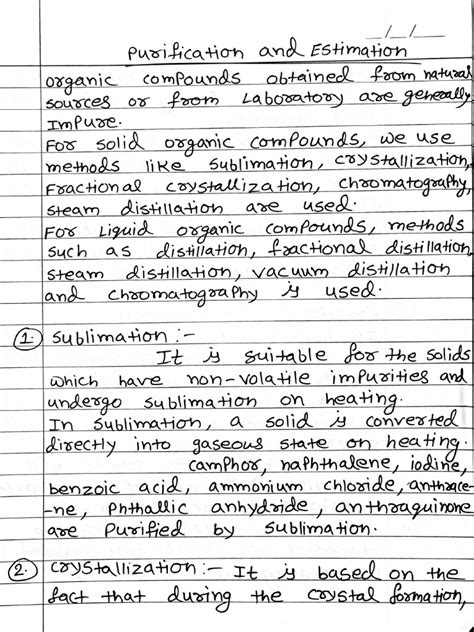 _/_/_
Purification and Estimation
organic compounds obtained from natural
sources or from Laboratory are generally
Impure.
For solid organic compounds, we use
methods like sublimation, crystallization,
Fractional crystallization, chromatography,
steam distillation are used.
For Liquid organic compounds, methods
such as distillation, fractional distillation,
steam distillation, vacuum distillation
and chromatography is used.
1. Sublimation :-
It is suitable for the solids
which have non-volatile impurities and
undergo sublimation on heating.
In sublimation, a solid is converted
directly into gaseous state on heating.
camphor, naphthalene, iodine,
benzoic acid, ammonium chloride, anthrace-
-ne, Phthallic anhydride, anthraquinone
are Purified by sublimation.
2. Crystallization :- It is based on the
fact that during the crystal formation,